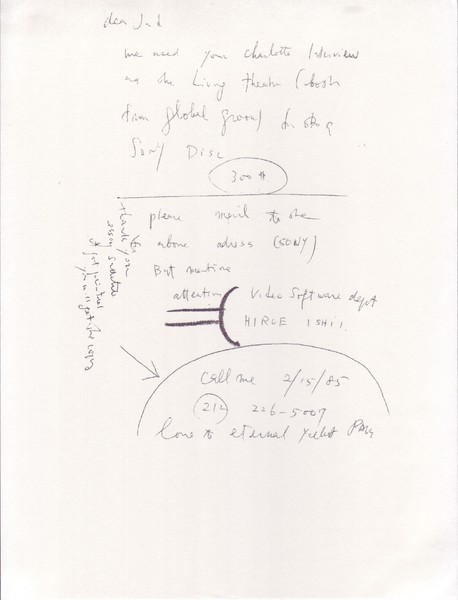 dear Jud
we need your charlotte Interview
and the Living theatre (both
from global groove) for the
Sony Disc
300 #
please mail to the
above adress (SONY)
But mention
attention Video Software dept
HIROE ISHII.
thank you
for
essay
it got printed
you'll get the copy
call me 2/15/85
(212) 226-5007
love to eternal
Paik